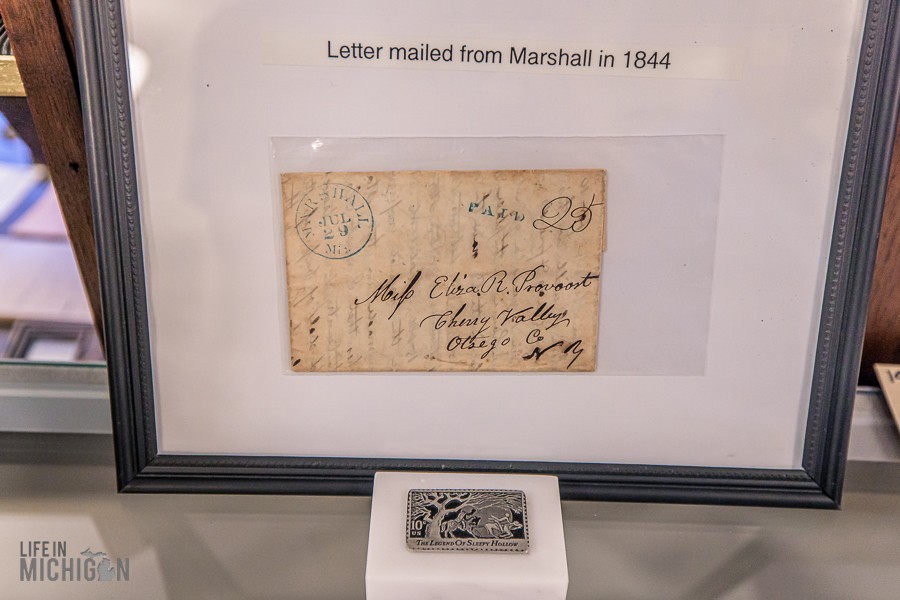 Letter mailed from Marshall in 1844
MARSHALL
JUL
29
Mic.
PAID
25
Miss Eliza. R. Provoost
Cherry Valley
Otsego Co
N Y
10c
US
THE LEGEND OF SLEEPY HOLLOW
LIFE IN
MICHIGAN